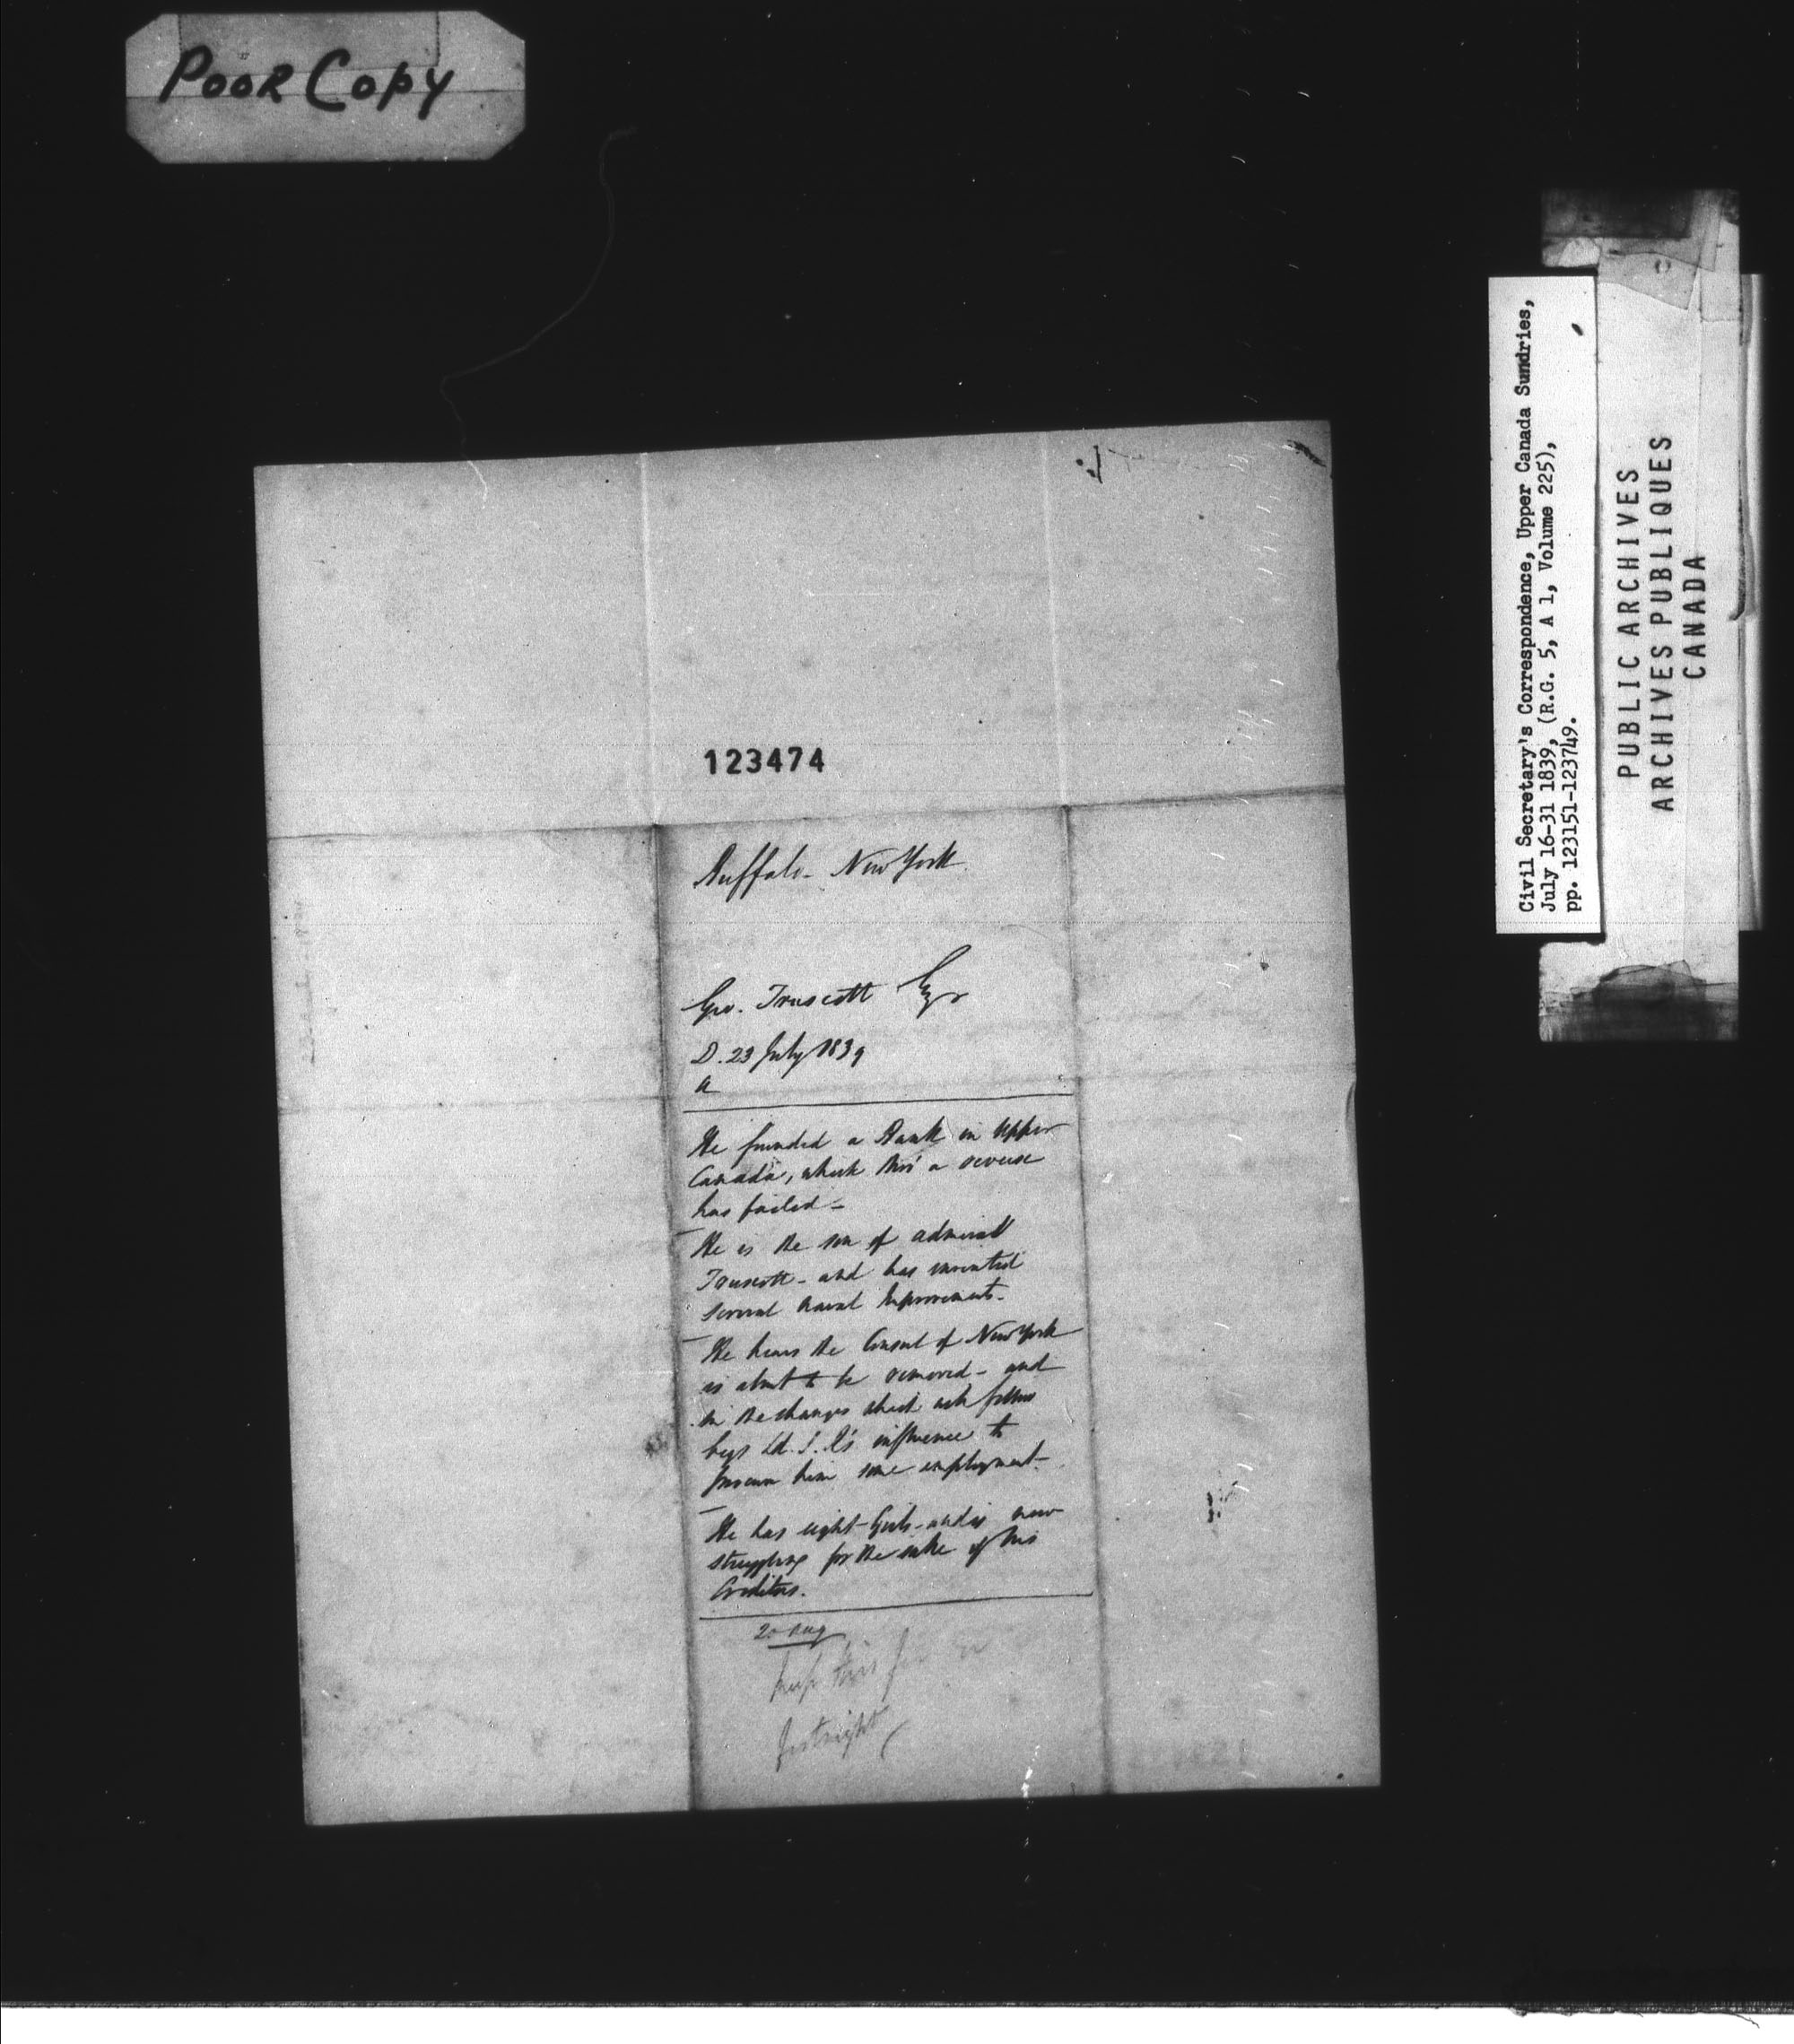 POOR COPY
123474
Buffalo - New York
Geo. Truscott Esqr
D. 23 July 1839
a
He founded a Bank in Upper
Canada, which thro' a reverse
has failed -
He is the son of Admiral
Truscott - and has invented
several naval Improvements.
He hears the Consul of New York
is about to be removed - and
in the changes which will follow
begs Ld. J. R's influence to
procure him some employment -
He has eight Girls - and is now
struggling for the sake of his
Creditors.
20 Aug
keep this for a
fortnight
Civil Secretary's Correspondence, Upper Canada Sundries,
July 16-31 1839, (R.G. 5, A 1, Volume 225),
pp. 123151-123749.
PUBLIC ARCHIVES
ARCHIVES PUBLIQUES
CANADA